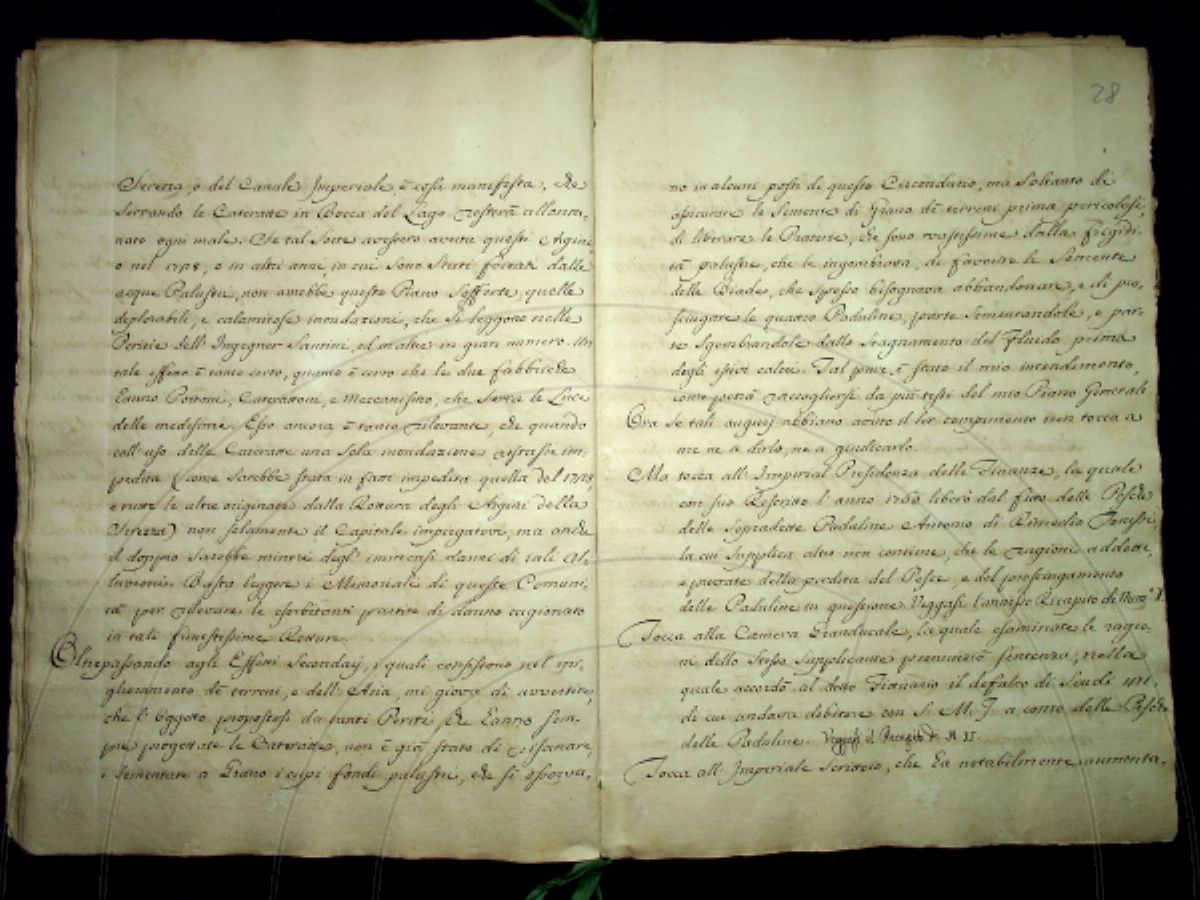 Serezza, o del Canale Imperiale è così manifesta, che
serrando le Cateratte in Bocca del Lago resterà allonta,
nato ogni male. Se tal sorte avessero avuta questi Argini
o nel 1718, o in altri anni, in cui sono stati forzati dalle
acque Palustri, non avrebbe questo Piano sofferte quelle
deplorabili, e calamitose inondazioni, che si leggono nelle
Perizie dell' Ingegner Santini, ed in altre in gran numero. Un
tale effetto è tanto certo, quanto è certo che le due fabbriche
hanno Portoni, Cateratton, e Meccanismo, che serra le Luce
delle medesime. Esso ancora è tanto rilevante, che quando
coll' uso delle Cateratte una sola inondazione restasse im,
pedita (come sarebbe stata in fatti impedita quella del
e tutte le altre originate dalla Rottura degli Argini della
Serezza) non solamente il Capitale impiegatovi, ma anche
il doppio sarebbe minore degl' immensi danni di tali Al,
luvioni. Basta leggere i Memoriali di queste Comuni,
tà per rilevare le esorbitanti partite di danno cagionato
in tali funestissime Rotture.
Oltrepassando agli Effetti Secondarj, i quali consistono nel mi,
glioramento de' terreni, e dell' Aria, mi giova di avvertire,
che l' Oggetto propostosi da tanti Periti che hanno sem,
pre progettate le Cateratte, non è già stato di risanare,
e sementare a Grano i cupi fondi palustri, che si osserva,
28
no in alcuni posti di questo Circondario, ma soltanto di
assicurare le Semente di Grano de' terreni prima pericolosi,
di liberare le Praterie, che sono vastissime dalla frigidi,
tà palustre, che le ingombrava, di favorire le Semente
delle Biade, che spesso bisognava abbandonare, e di pro,
sciugare le quattro Paduline, parte sementandole, e par,
te sgombrandole dallo stagnamento del Fluido prima
degli estivi calori. Tal pure è stato il mio intendimento,
come potrà raccogliersi da più testi del mio Piano Generale
Ora se tali augurj abbiano avuto il lor compimento non tocca a
me ne a dirlo, ne a giudicarlo.
Ma tocca all' Imperial Presidenza delle Finanze, la quale
con suo Rescritto l' anno 1760 liberò dal fitto delle Pesche
delle sopradette Paduline Antonio di
la cui supplica altro non contiene, che le ragioni addotte,
e provate della perdita del Pesce, e del prosciugamento
delle Paduline in questione. Veggasi l' annesso Recapito di Num.º X.
Tocca alla Camera Granducale, la quale esaminate le ragio,
ni dello stesso Supplicante pronunziò sentenza, nella
quale accordò al detto Fittuario il defalco di Scudi
di cui andava debitore con S. M. I. a conto delle Pesche
delle Paduline. Veggasi il Recapito di N. XI.
Tocca all' Imperiale Scrittoio, che ha notabilmente aumenta,